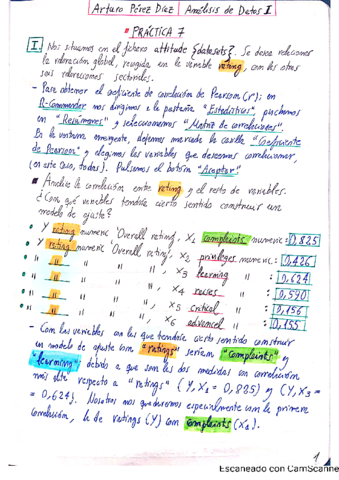 Arturo Pérez Díaz | Análisis de Datos I
* PRÁCTICA 7
I. Nos situamos en el fichero attitude {datasets}. Se desea relacionar
la valoración global, recogida en la variable rating, con las otras
seis valoraciones sectoriales.
- Para obtener el coeficiente de correlación de Pearson (r); en
R-Commander nos dirigimos a la pestaña "Estadísticos", pinchamos
en "Resúmenes" y seleccionamos "Matriz de correlaciones".
En la ventana emergente, dejamos marcada la casilla "Coeficiente
de Pearson" y elegimos las variables que deseamos correlacionar,
(en este caso, todas). Pulsamos el botón "Aceptar".
■ Analice la correlación entre rating y el resto de variables.
¿Con qué variables tendría cierto sentido construir un
modelo de ajuste?
• Y rating numeric 'Overall rating', X1 complaints numeric: 0,825
• Y rating numeric 'Overall rating', X2 privileges numeric: 0,426
• " " " " , X3 learning " : 0,624
• " " " " , X4 raises " : 0,590
• " " " " , X5 critical " : 0,156
• " " " " , X6 advancel " : 0,155
- Con las variables con las que tendría cierto sentido construir
un modelo de ajuste con "ratings" serían "complaints" y
"learning"; debido a que son las dos medidas con correlación
más alta respecto a "ratings" { Y, X1 = 0,825} y {Y, X3 =
= 0,624}. Nosotros nos quedaremos especialmente con la primera
correlación, la de ratings (Y) con complaints (X1).
1
Escaneado con CamScanner